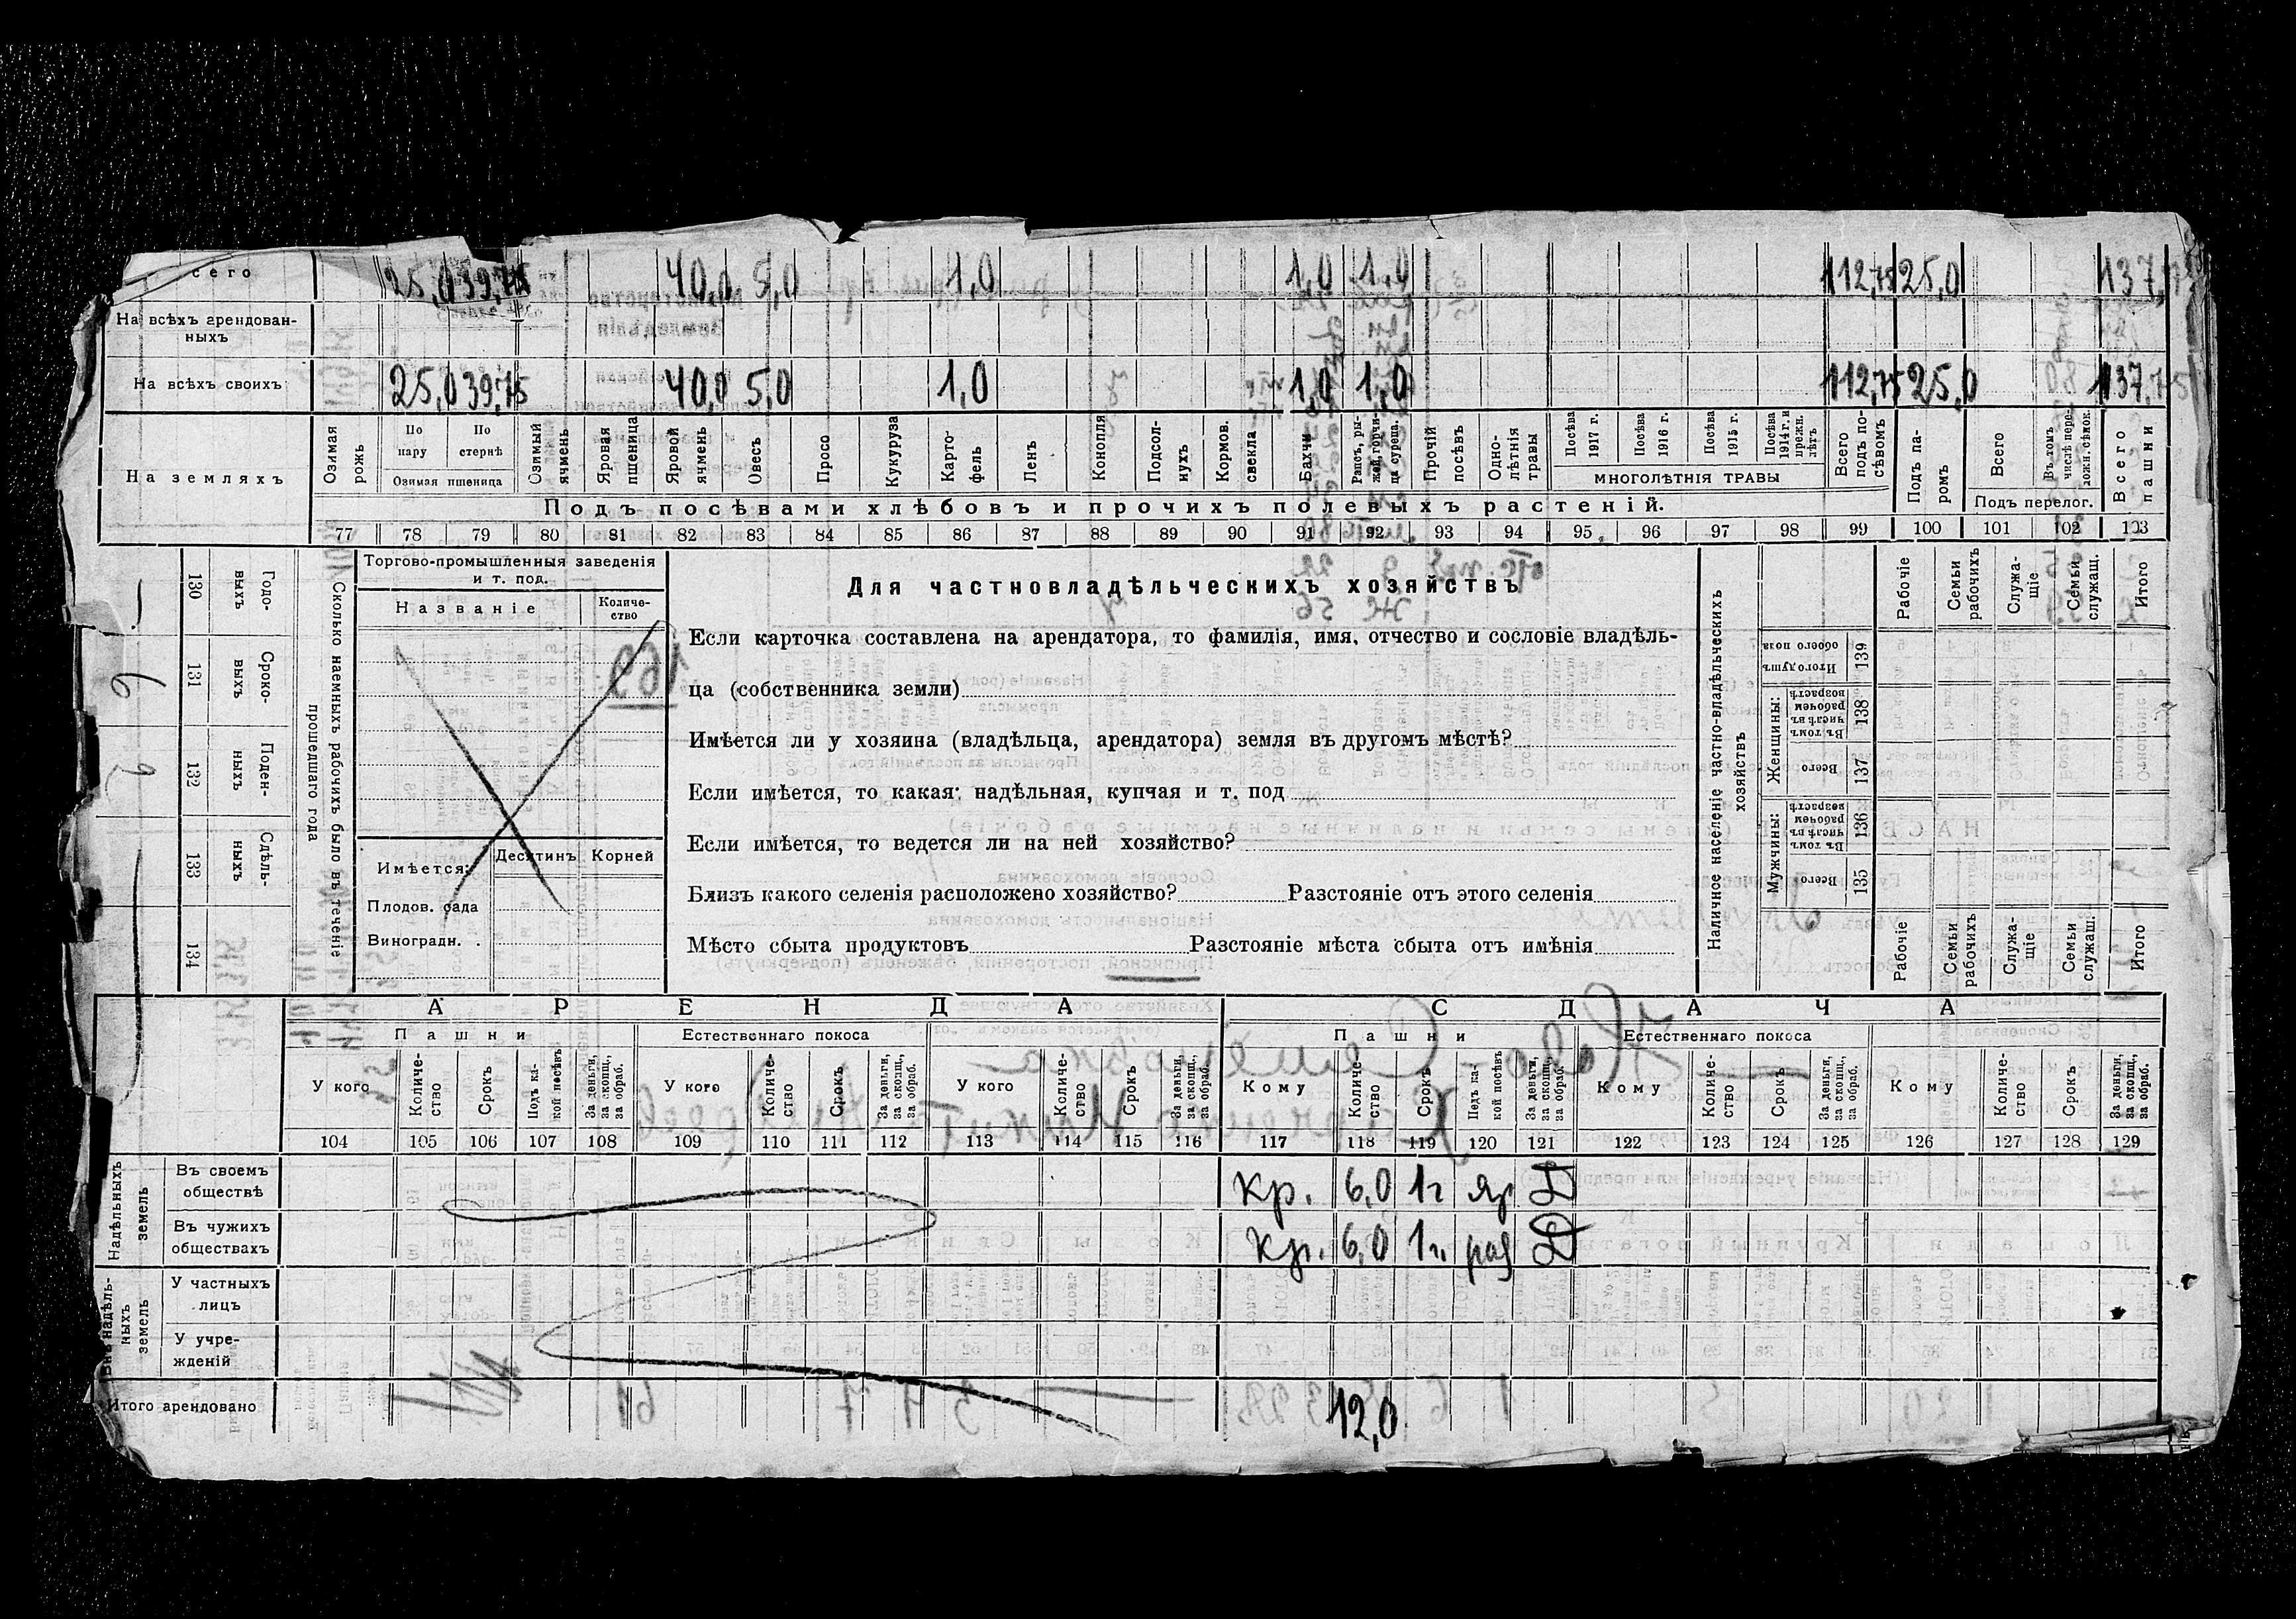 сего 25,0 39,75 40,0 5,0 1,0 1,0 1,0 112,75 25,0 137,75
На всѣхъ арендован-
ныхъ
На всѣхъ своихъ 25,0 39,75 40,0 5,0 1,0 1,0 1,0 112,75 25,0 137,75
На земляхъ
Озимая рожь
По пару
По стернѣ
Озимая пшеница
Озимый ячмень
Яровая пшеница
Яровой ячмень
Овесъ
Просо
Кукуруза
Карто-
фель
Ленъ
Конопля
Подсол-
нухъ
Кормов. свекла
Бахчи
Рапсъ, ры-
жей, горчи-
ца суреца.
Прочій посѣвъ
Одно-
лѣтнія травы
Посѣва 1917 г.
Посѣва 1916 г.
Посѣва 1915 г.
Посѣва 1914 г. и прежн. лѣтъ
МНОГОЛѢТНІЯ ТРАВЫ
Всего подъ по-
сѣвомъ
Подъ па-
ромъ
Всего
Въ томъ числѣ пере-
ложн. сѣнок.
Подъ перелог.
Всего пашни
Подъ посѣвами хлѣбовъ и прочихъ полевыхъ растеній.
77 78 79 80 81 82 83 84 85 86 87 88 89 90 91 92 93 94 95 96 97 98 99 100 101 102 103
130 Годо-
выхъ —
131 Сроко-
выхъ 6
132 Поден-
ныхъ 2
133 Сдѣль-
ныхъ
134
Сколько наемныхъ рабочихъ было въ теченіе
прошедшаго года
Торгово-промышленныя заведенія
и т. под.
Названіе
Количе-
ство
169
Имѣется:
Десятинъ
Корней
Плодов. сада
Виноградн.
Для частновладѣльческихъ хозяйствъ
Если карточка составлена на арендатора, то фамилія, имя, отчество и сословіе владѣль-
ца (собственника земли)
Имѣется ли у хозяина (владѣльца, арендатора) земля въ другомъ мѣстѣ?
Если имѣется, то какая: надѣльная, купчая и т. под
Если имѣется, то ведется ли на ней хозяйство?
Близъ какого селенія расположено хозяйство? Разстояніе отъ этого селенія
Мѣсто сбыта продуктовъ Разстояніе мѣста сбыта отъ имѣнія
Наличное населеніе частно-владѣльческихъ
хозяйствъ
Рабочіе
Семьи рабочихъ
Служа-
щіе
Семьи служащ.
Итого
Итого душъ обоего пола 139
Женщины:
Въ томъ числѣ въ рабочемъ возрастѣ 138
Всего 137
Мужчины:
Въ томъ числѣ въ рабочемъ возрастѣ 136
Всего 135
Рабочіе
Семьи рабочихъ
Служа-
щіе
Семьи служащ.
Итого
АРЕНДА
СДАЧА
Пашни
Естественнаго покоса
Пашни
Естественнаго покоса
У кого
Количе-
ство
Срокъ
Подъ ка-
кой посѣвъ
За деньги, за скопщ., за обраб.
У кого
Количе-
ство
Срокъ
За деньги, за скопщ., за обраб.
У кого
Количе-
ство
Срокъ
За деньги, за скопщ., за обраб.
Кому
Количе-
ство
Срокъ
Подъ ка-
кой посѣвъ
За деньги, за скопщ., за обраб.
Кому
Количе-
ство
Срокъ
За деньги, за скопщ., за обраб.
Кому
Количе-
ство
Срокъ
За деньги, за скопщ., за обраб.
104 105 106 107 108 109 110 111 112 113 114 115 116 117 118 119 120 121 122 123 124 125 126 127 128 129
Надѣльныхъ земель
Въ своемъ
обществѣ
кр. 6,0 1г яр Д
Въ чужихъ
обществахъ
кр. 6,0 1г. Д
Внѣ надѣль-
ныхъ земель
У частныхъ
лицъ
У учре-
жденій
Итого арендовано 12,0